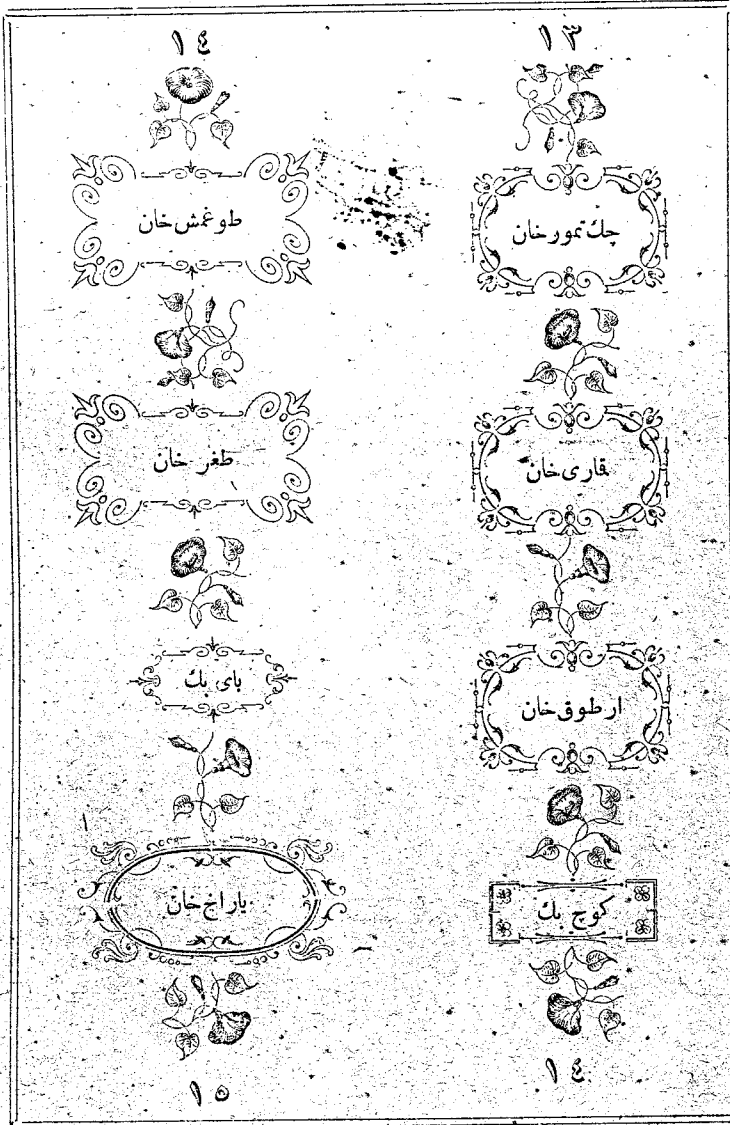 ١٣
چك تمور خان
قاری خان
ارطوق خان
كوج بك
١٤
١٤
طوغمش خان
طغر خان
بای بك
یاراج خان
١٥